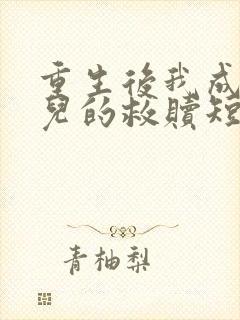 重生後我成
兒的救贖短
青柚梨